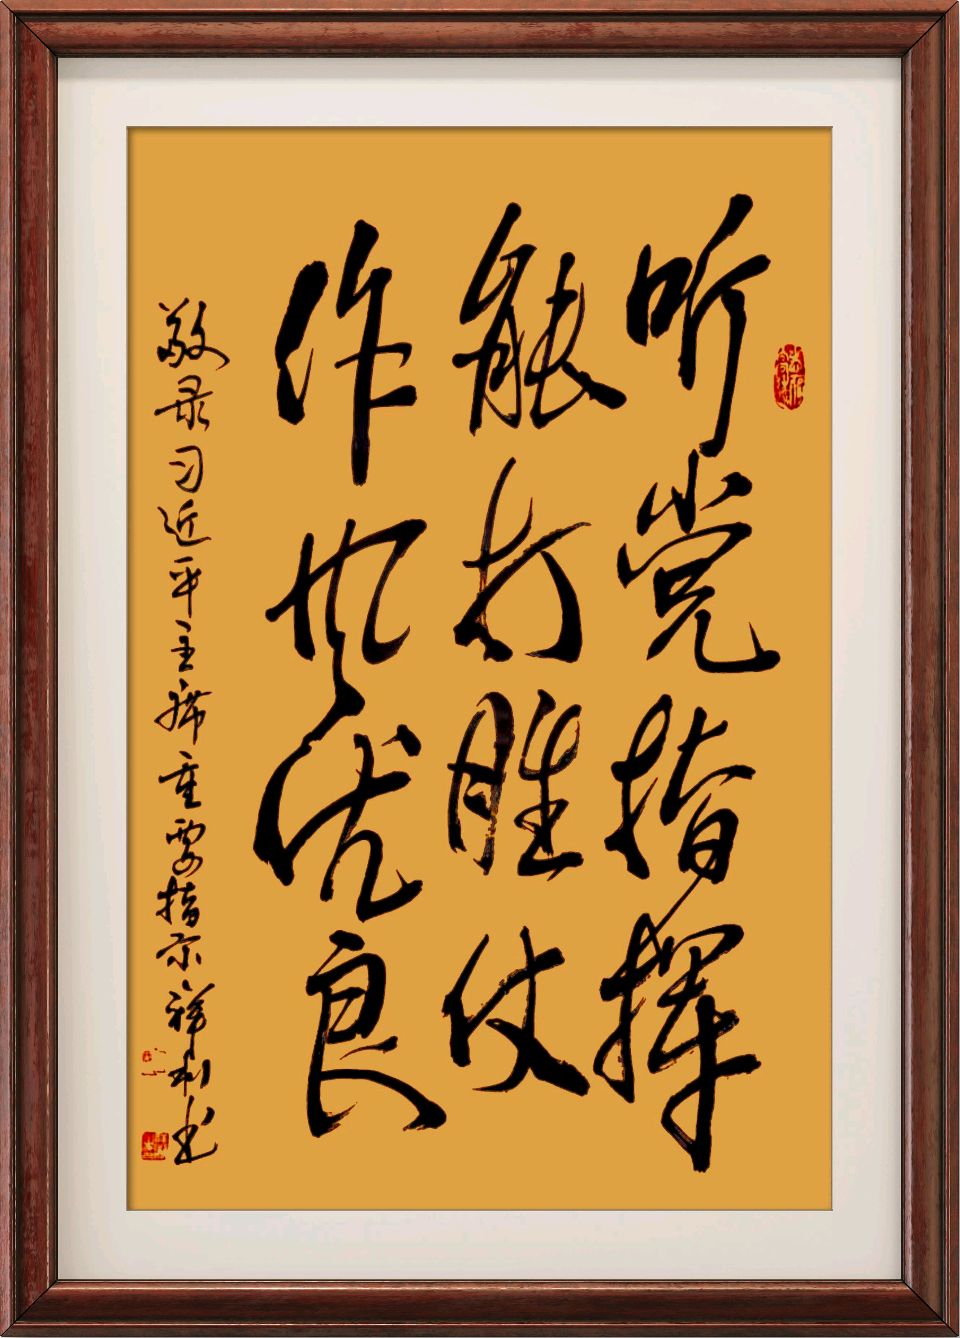 听党指挥
能打胜仗
作风优良
敬录习近平主席重要指示祥利书